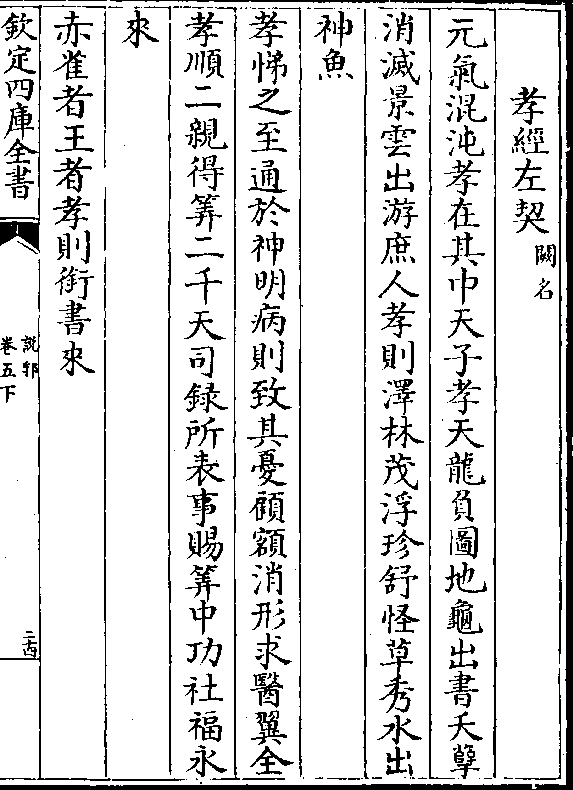 孝經左契 闕名
元氣混沌孝在其中天子孝天龍負圖地龜出書夭孽
消滅景雲出游庶人孝則澤林茂浮珍舒怪草秀水出
神魚
孝悌之至通於神明病則致其憂顑頷消形求醫翼全
孝順二親得筭二千天司録所表事賜筭中功社福永
來
赤雀者王者孝則銜書來
欽定四庫全書
說郛
卷五下
二十四